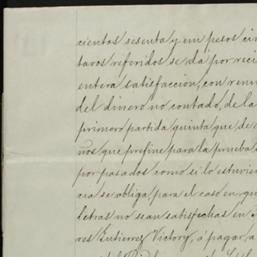 cientos sesenta y un pesos cin
tavos referidos se dá por reci
entera satisfaccion, con renu
del dinero no contado, de la
primero partida quinta que, de e
ños que prefine para la prueba d
por pasados como si lo estuvier
cia se obliga para el caso en qu
letras no sean satisfechas en
res Gutierrez Victory, á pagar, a